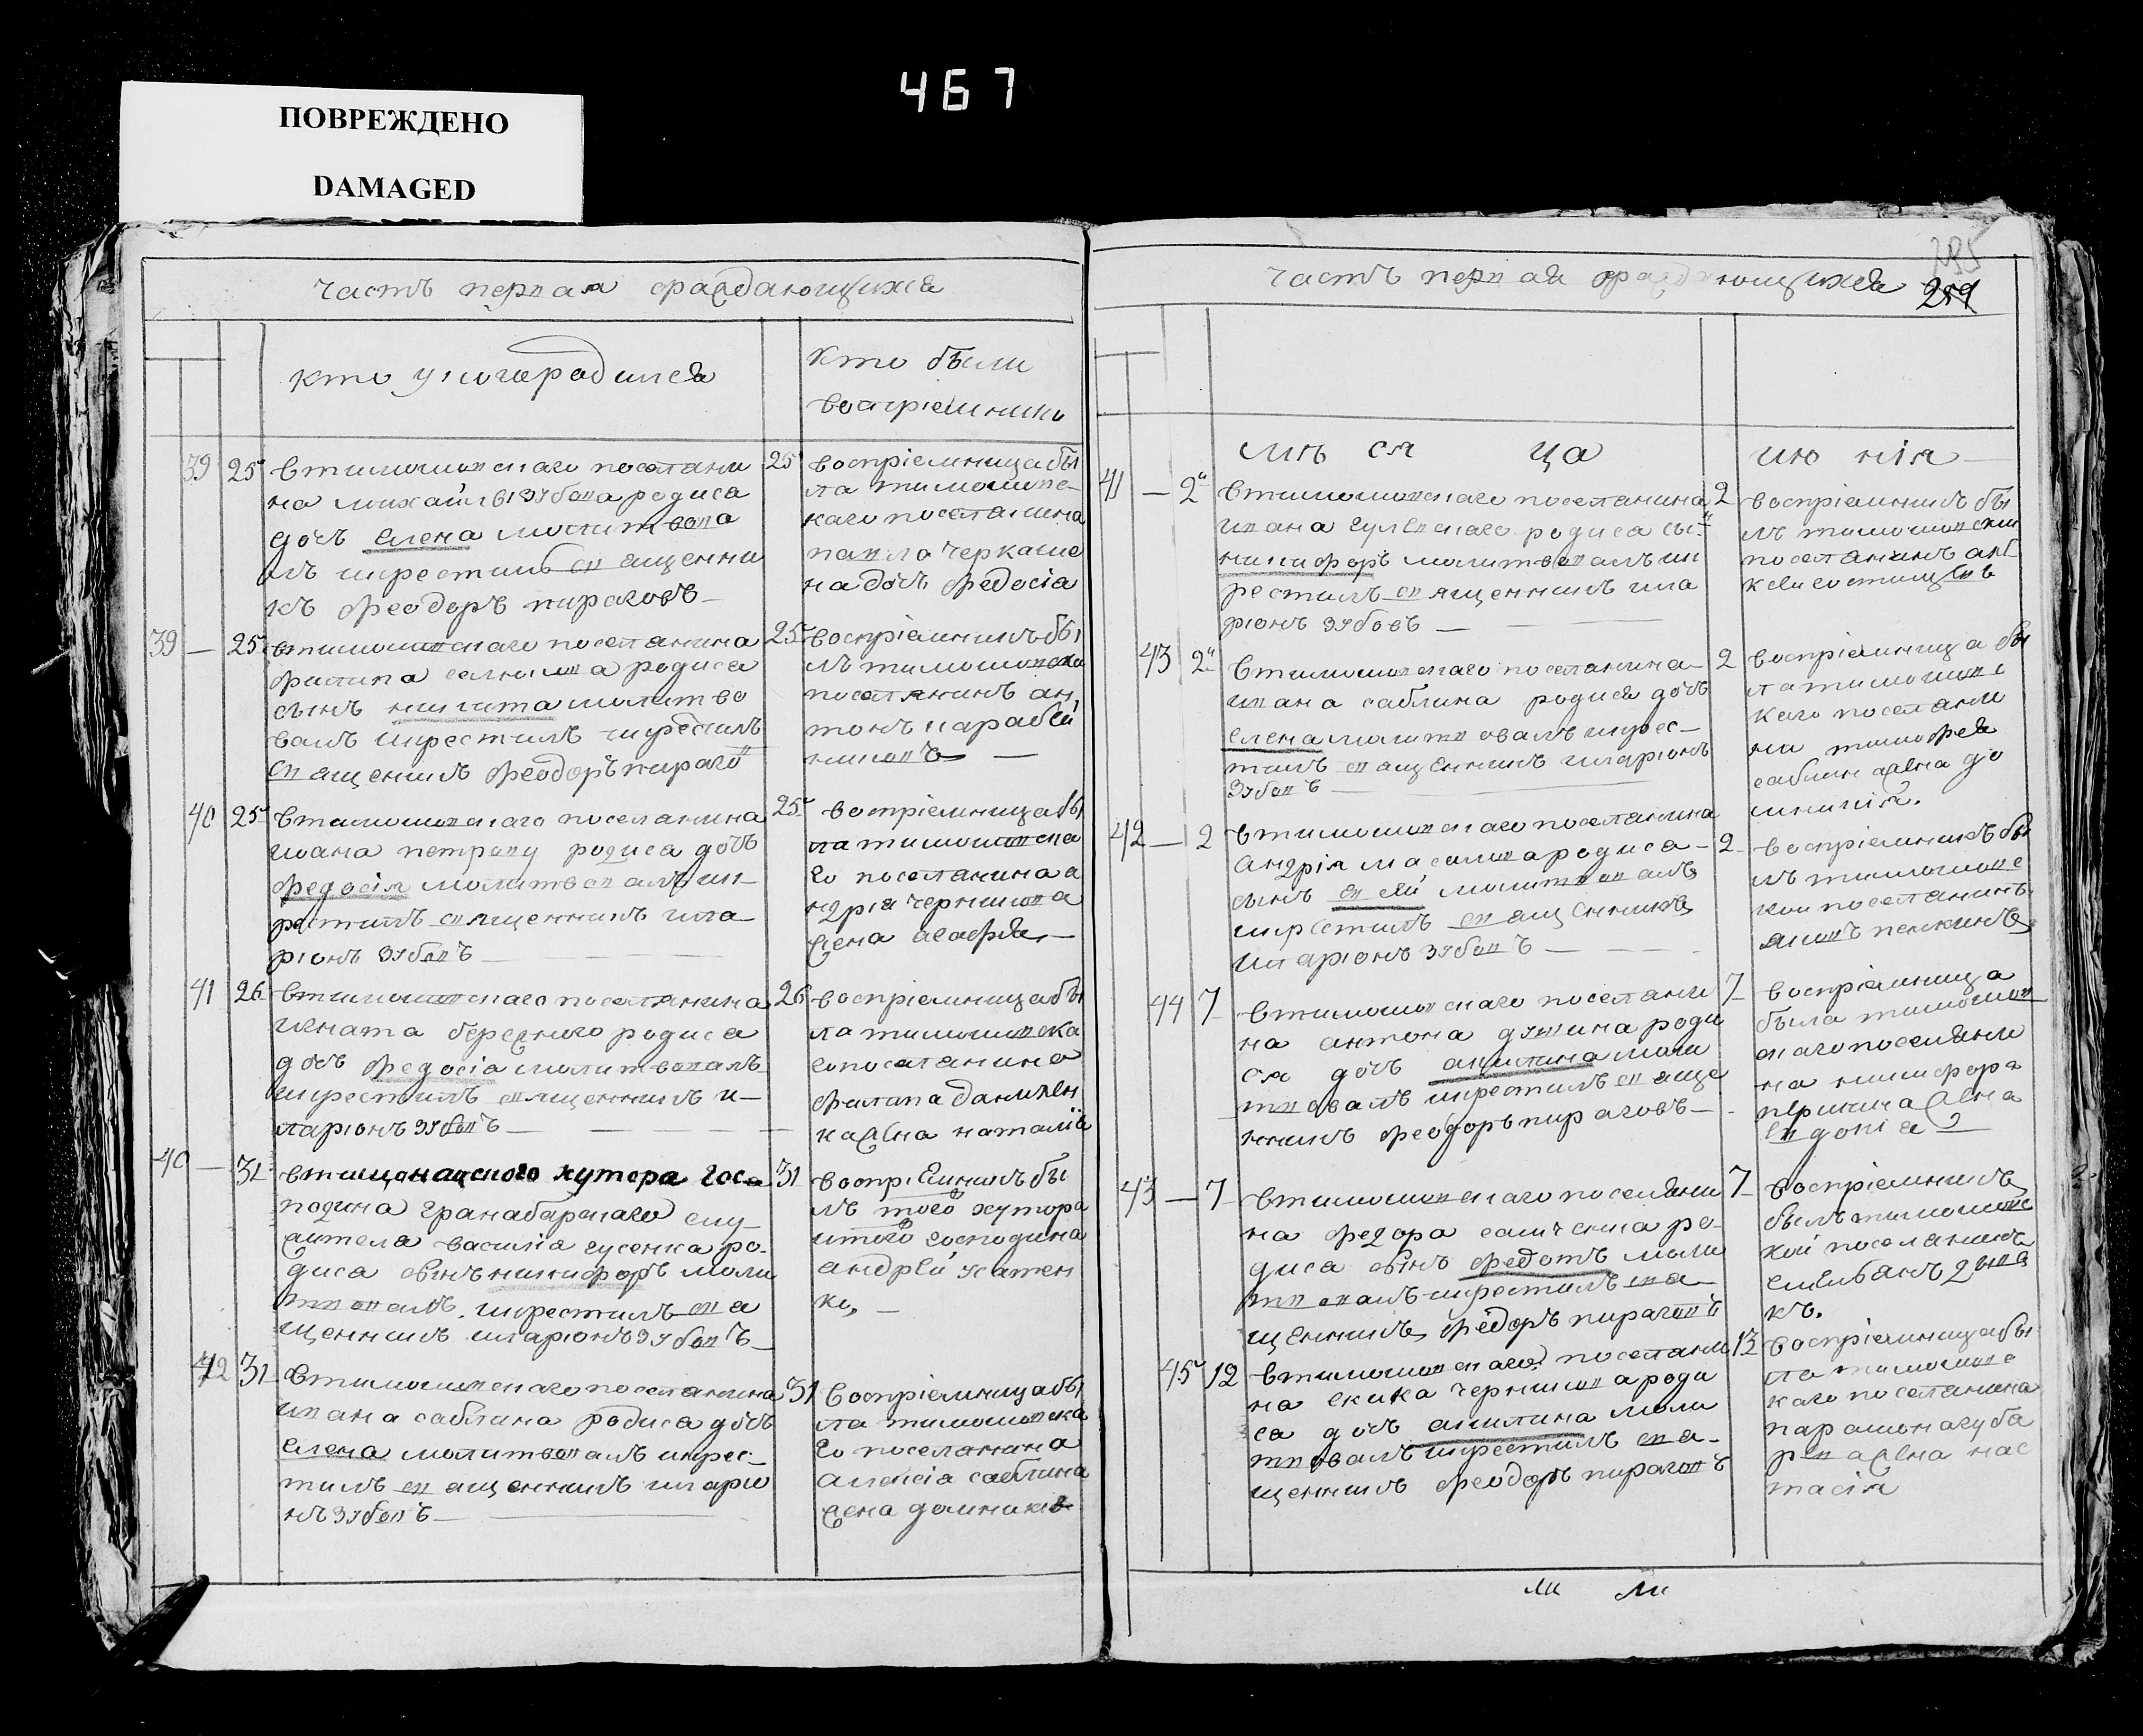 467
ПОВРЕЖДЕНО
DAMAGED
часть первая ораждающихся
кто у кого родился
кто были
воспріемники
39 25
втимошовскаго поселяни
на михайла зубова родиса
дочь елена молитвова
лъ икрестилъ священни
къ феодоръ пироговъ
25
воспріемница бы
ла тимошовс
каго поселянина
павла черкаше
на дочь федосіа
39 — 25
втимошовскаго поселянина
филипа родиса
сынъ никита молитво
валъ икрестилъ икрестилъ
священикъ феодоръ пирого
25
воспріемникъ бы
лъ тимошовски
поселянинъ ан
тонъ карабей
никовъ
40 25
втимошовскаго поселянина
ивана петрову родиса дочь
федосія молитвовалъ ик
рестилъ священникъ ила
ріонъ зубовъ
25
воспріемница бы
ла тимошовска
го поселянина а
ндріа чернишова
жена агафіа
41 26
втимошовскаго поселянина
игната бережного родиса
дочь федосіа молитвовалъ
икрестилъ священникъ и
ларіонъ зубовъ
26
воспріемница бы
ла тимошовска
го поселянина
филипа данилен
ка жена наталіа
40 — 31
хутора гос
подина гранабарскаго слу
жителя василіа гусенка ро
диса сынъ никифоръ моли
твовалъ икрестилъ свя
щенникъ иларіонъ зубовъ
31
воспріемникъ бы
лъ того хутора
итого господина
андрей усатен
ко
42 31
втимошовскаго поселянина
ивана саблина родиса дочь
елена молитвовалъ икрес
тилъ священникъ иларіо
нъ зубовъ
31
воспріемница бы
ла тимошовска
го поселянина
алексіа саблина
жена домникіа
часть первая ораждающихся
259
мѣ ся ца
ію нія
41 — 2
втимошовскаго поселянина
ивана родиса сы
никифоръ молитвовалъ ик
рестилъ священникъ ила
ріонъ зубовъ
2
воспріемникъ бы
лъ тимошовски
поселянинъ
43 2
втимошовскаго поселянина
ивана саблина родися дочь
елена молитвовалъ икрес
тилъ священникъ иларіонъ
зубовъ
2
воспріемница бы
ла тимошовс
каго поселяни
на тимофея
саблин жена до
мникія.
42 — 2
втимошовскаго поселянина
андрія родиса
сынъ молитвовалъ
икрестилъ священникъ
иларіонъ зубовъ
2
воспріемникъ бы
лъ тимошовс
кои поселянинъ
яковъ
44 7
втимошовскаго поселяни
на антона роди
ся дочь акилина моли
твовалъ икрестилъ свяще
нникъ феодоръ пироговъ
7
воспріемница
была тимошов
скаго поселяни
на никифора
жена
евдокіа
43 — 7
втимошовскаго поселяни
на федора ро
диса сынъ федотъ моли
твовалъ икрестилъ свя
щенникъ феодоръ пироговъ
7
воспріемникъ
былъ тимошовс
кой поселянинъ
емельянъ
къ.
45 12
втимошовскаго поселяни
на чернишова роди
са дочь акилина моли
твовалъ икрестилъ свя
щенникъ феодоръ пироговъ
12
воспріемница бы
ла тимошовс
каго поселянина
парамона губа
рева жена нас
тасія